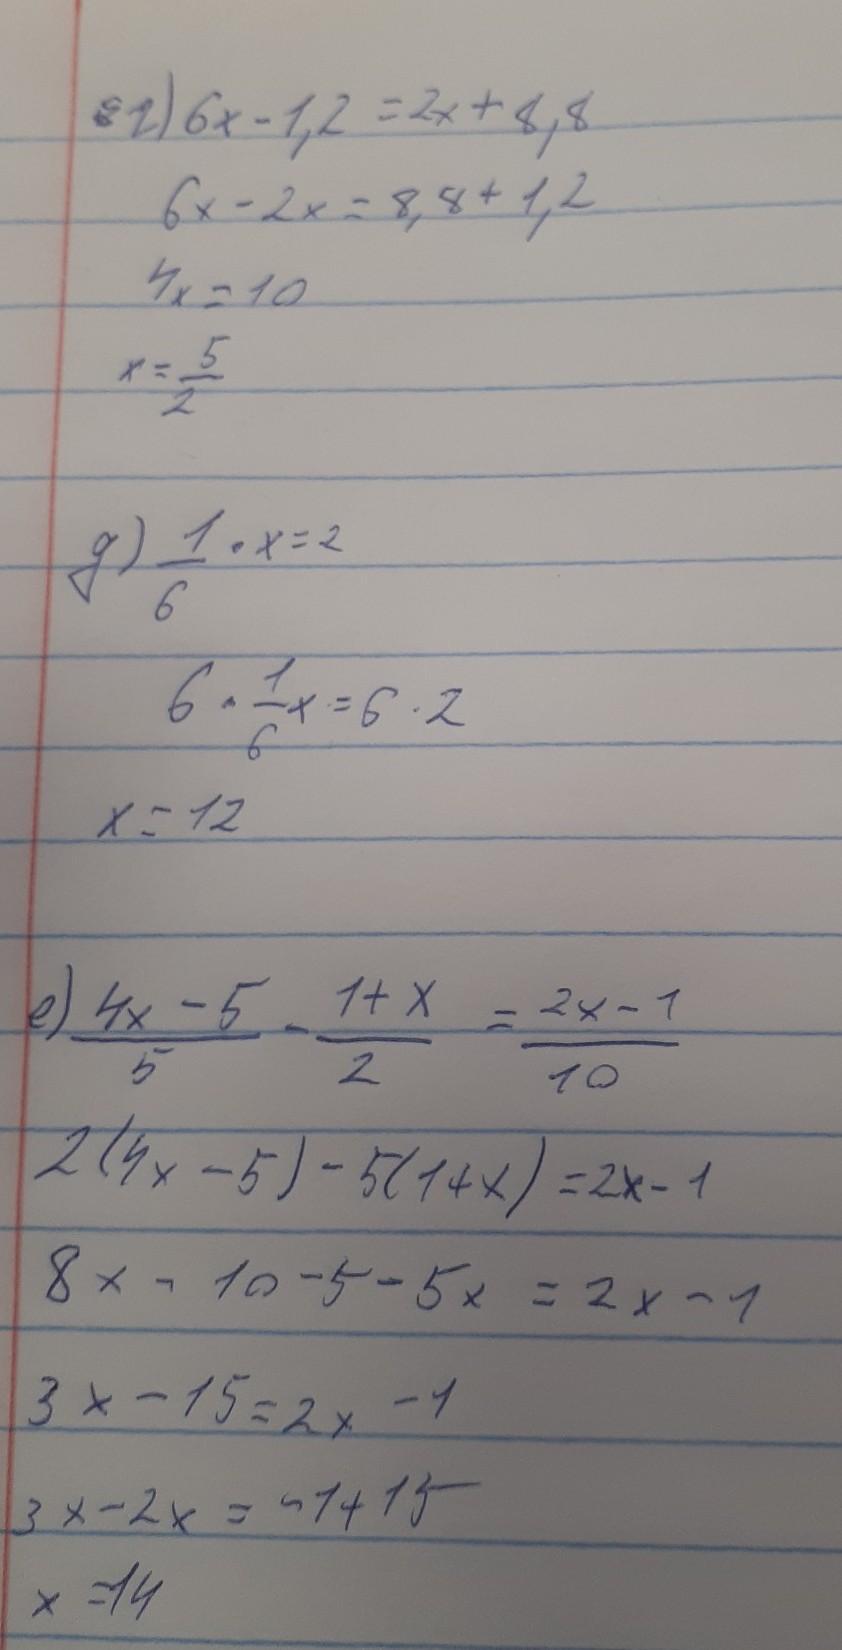 г) 6x - 1,2 = 2x + 8,8
6x - 2x = 8,8 + 1,2
4x = 10
x = 5/2
д) 1/6 · x = 2
6 · 1/6 x = 6 · 2
x = 12
е) (4x - 5)/5 - (1 + x)/2 = (2x - 1)/10
2(4x - 5) - 5(1 + x) = 2x - 1
8x - 10 - 5 - 5x = 2x - 1
3x - 15 = 2x - 1
3x - 2x = -1 + 15
x = 14